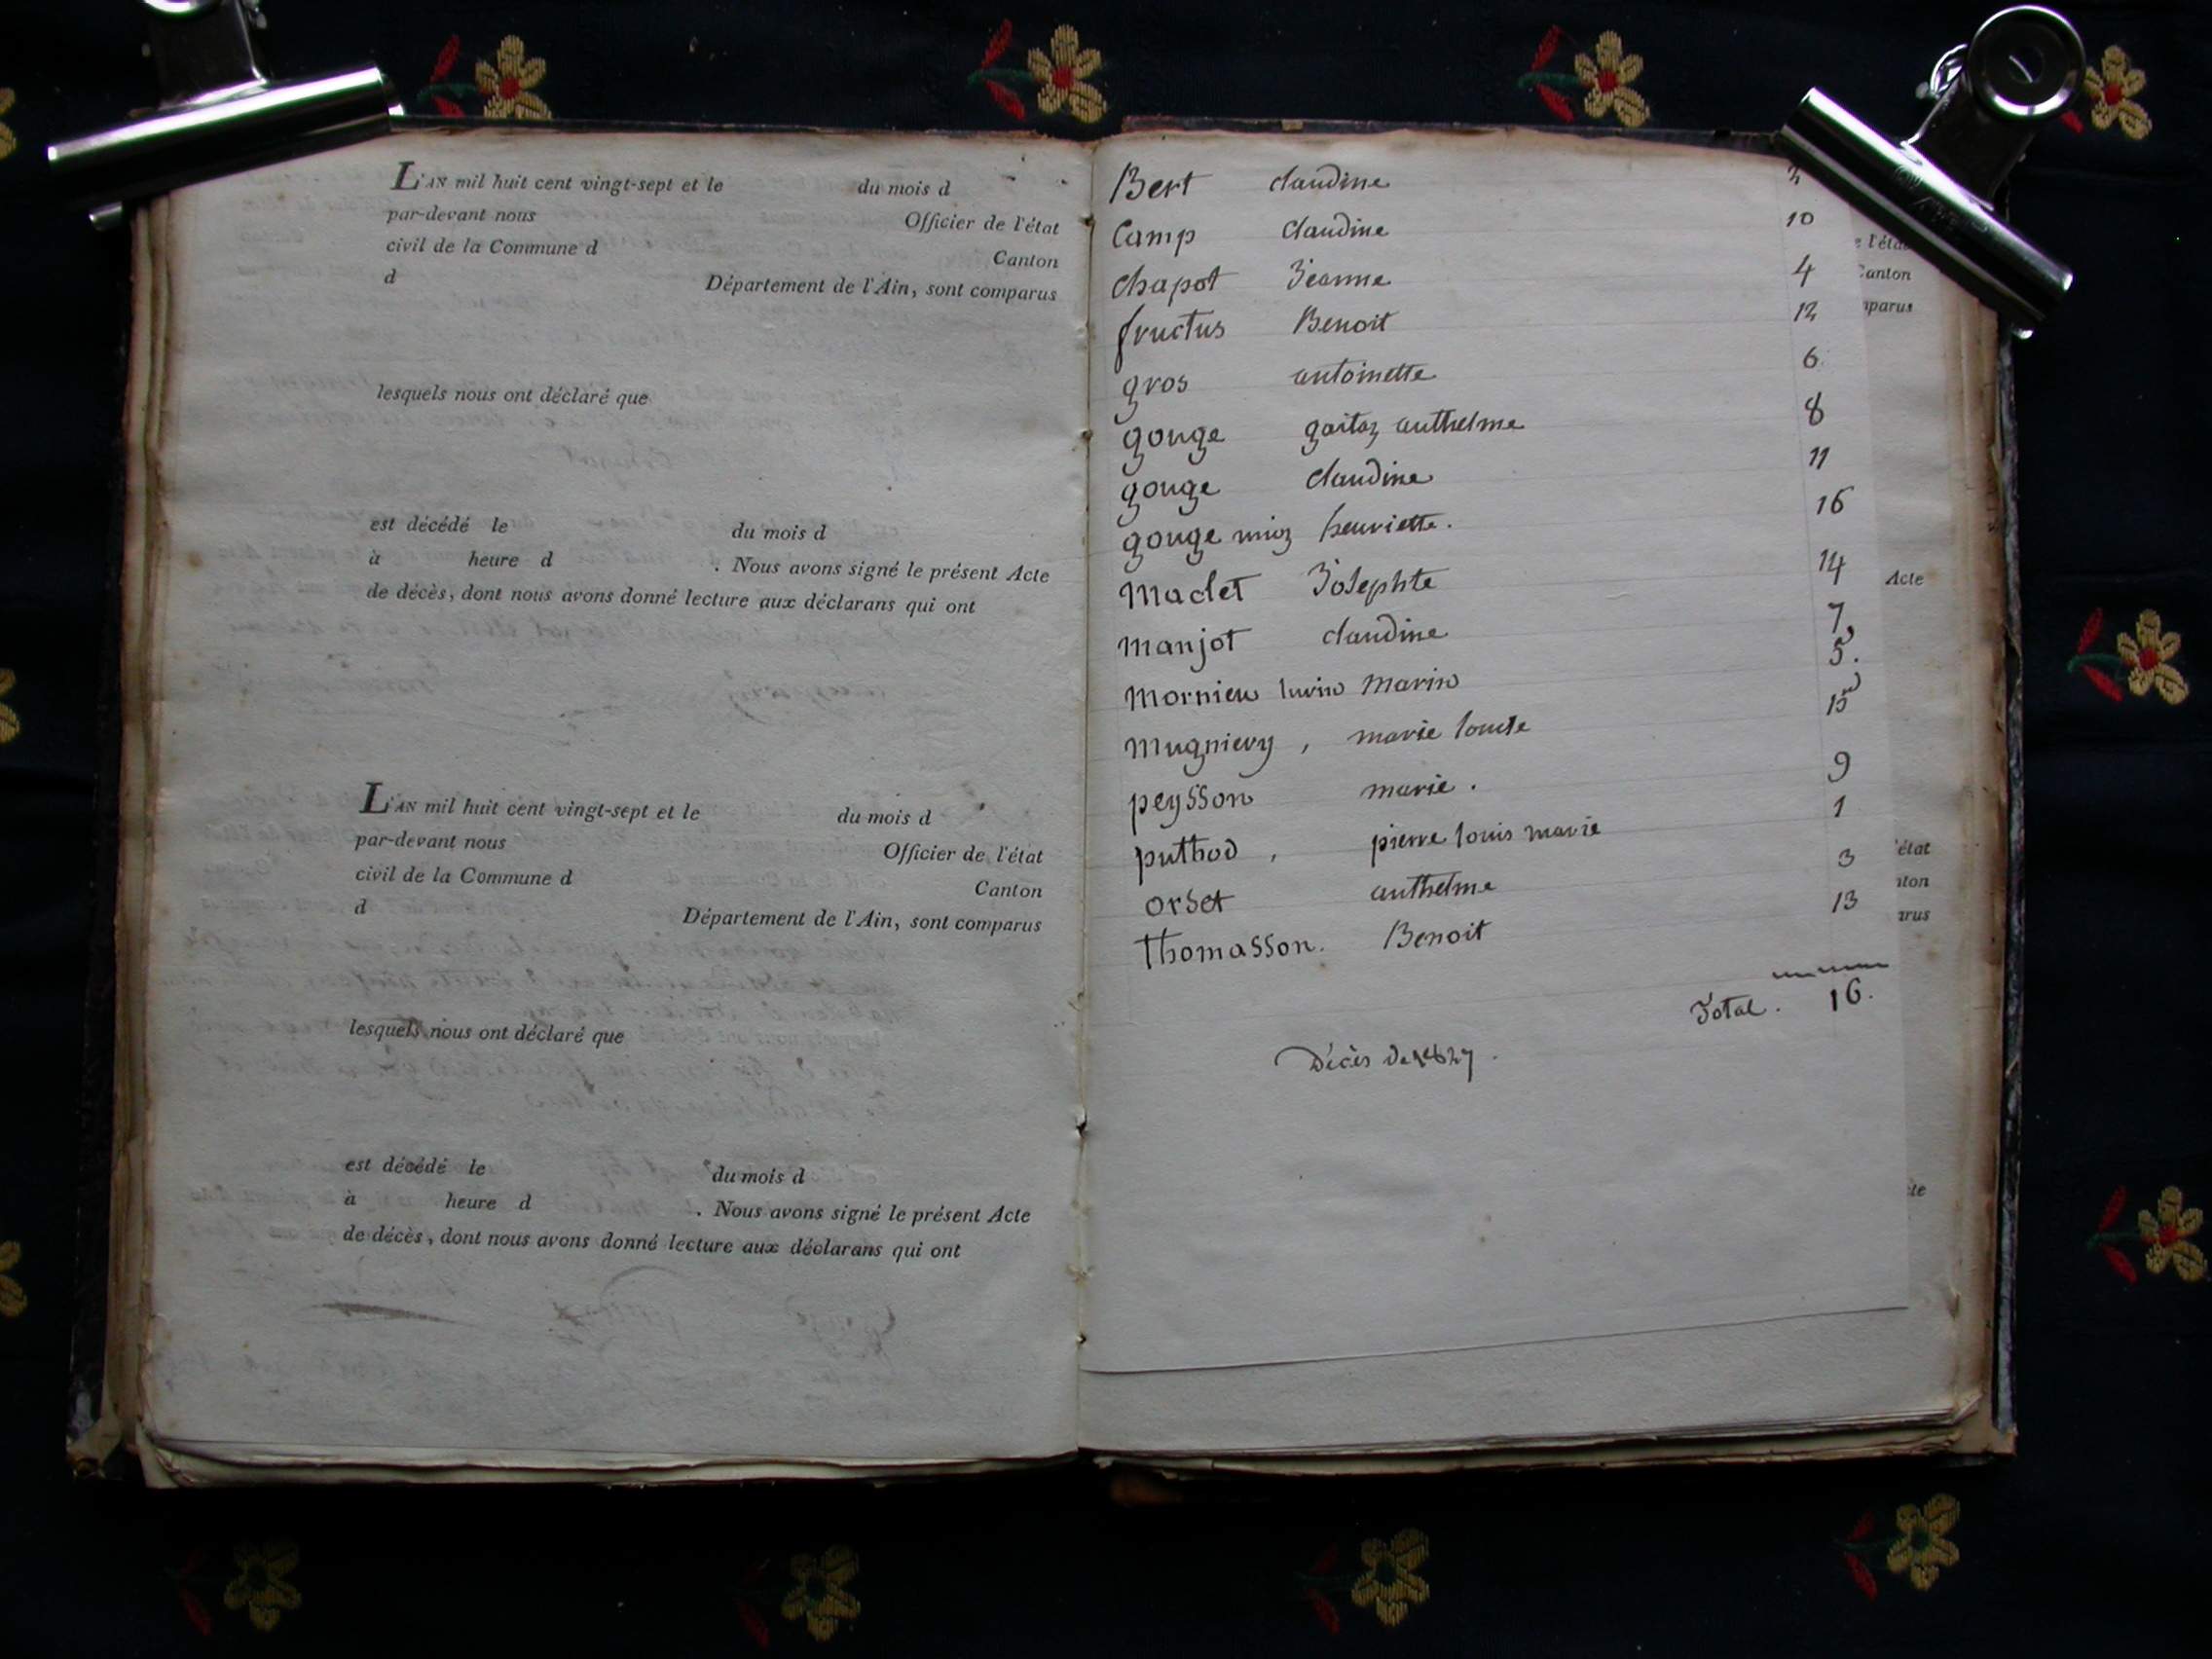 L'AN mil huit cent vingt-sept et le du mois d
par-devant nous Officier de l'état
civil de la Commune d Canton
d Département de l'Ain, sont comparus
lesquels nous ont déclaré que
est décédé le du mois d
à heure d . Nous avons signé le présent Acte
de décès, dont nous avons donné lecture aux déclarans qui ont
L'AN mil huit cent vingt-sept et le du mois d
par-devant nous Officier de l'état
civil de la Commune d Canton
d Département de l'Ain, sont comparus
lesquels nous ont déclaré que
est décédé le du mois d
à heure d . Nous avons signé le présent Acte
de décès, dont nous avons donné lecture aux déclarans qui ont
Bert claudine 2
Camp claudine 10
chapot Jeanne 4
fructus Benoit 12
gros antoinette 6
gouge anthelme 8
gouge claudine 11
gouge mioz henriette. 16
Maclet Josephte 14
Manjot claudine 7
Mornieu Marin 5.
Mugniery, marie louise 15
peysson marie. 9
puthod, pierre louis marie 1
orset anthelme 3
Thomasson. Benoit 13
Total. 16.
Décès de 1827.
l'état
Canton
mparus
Acte
'état
nton
arus
cte